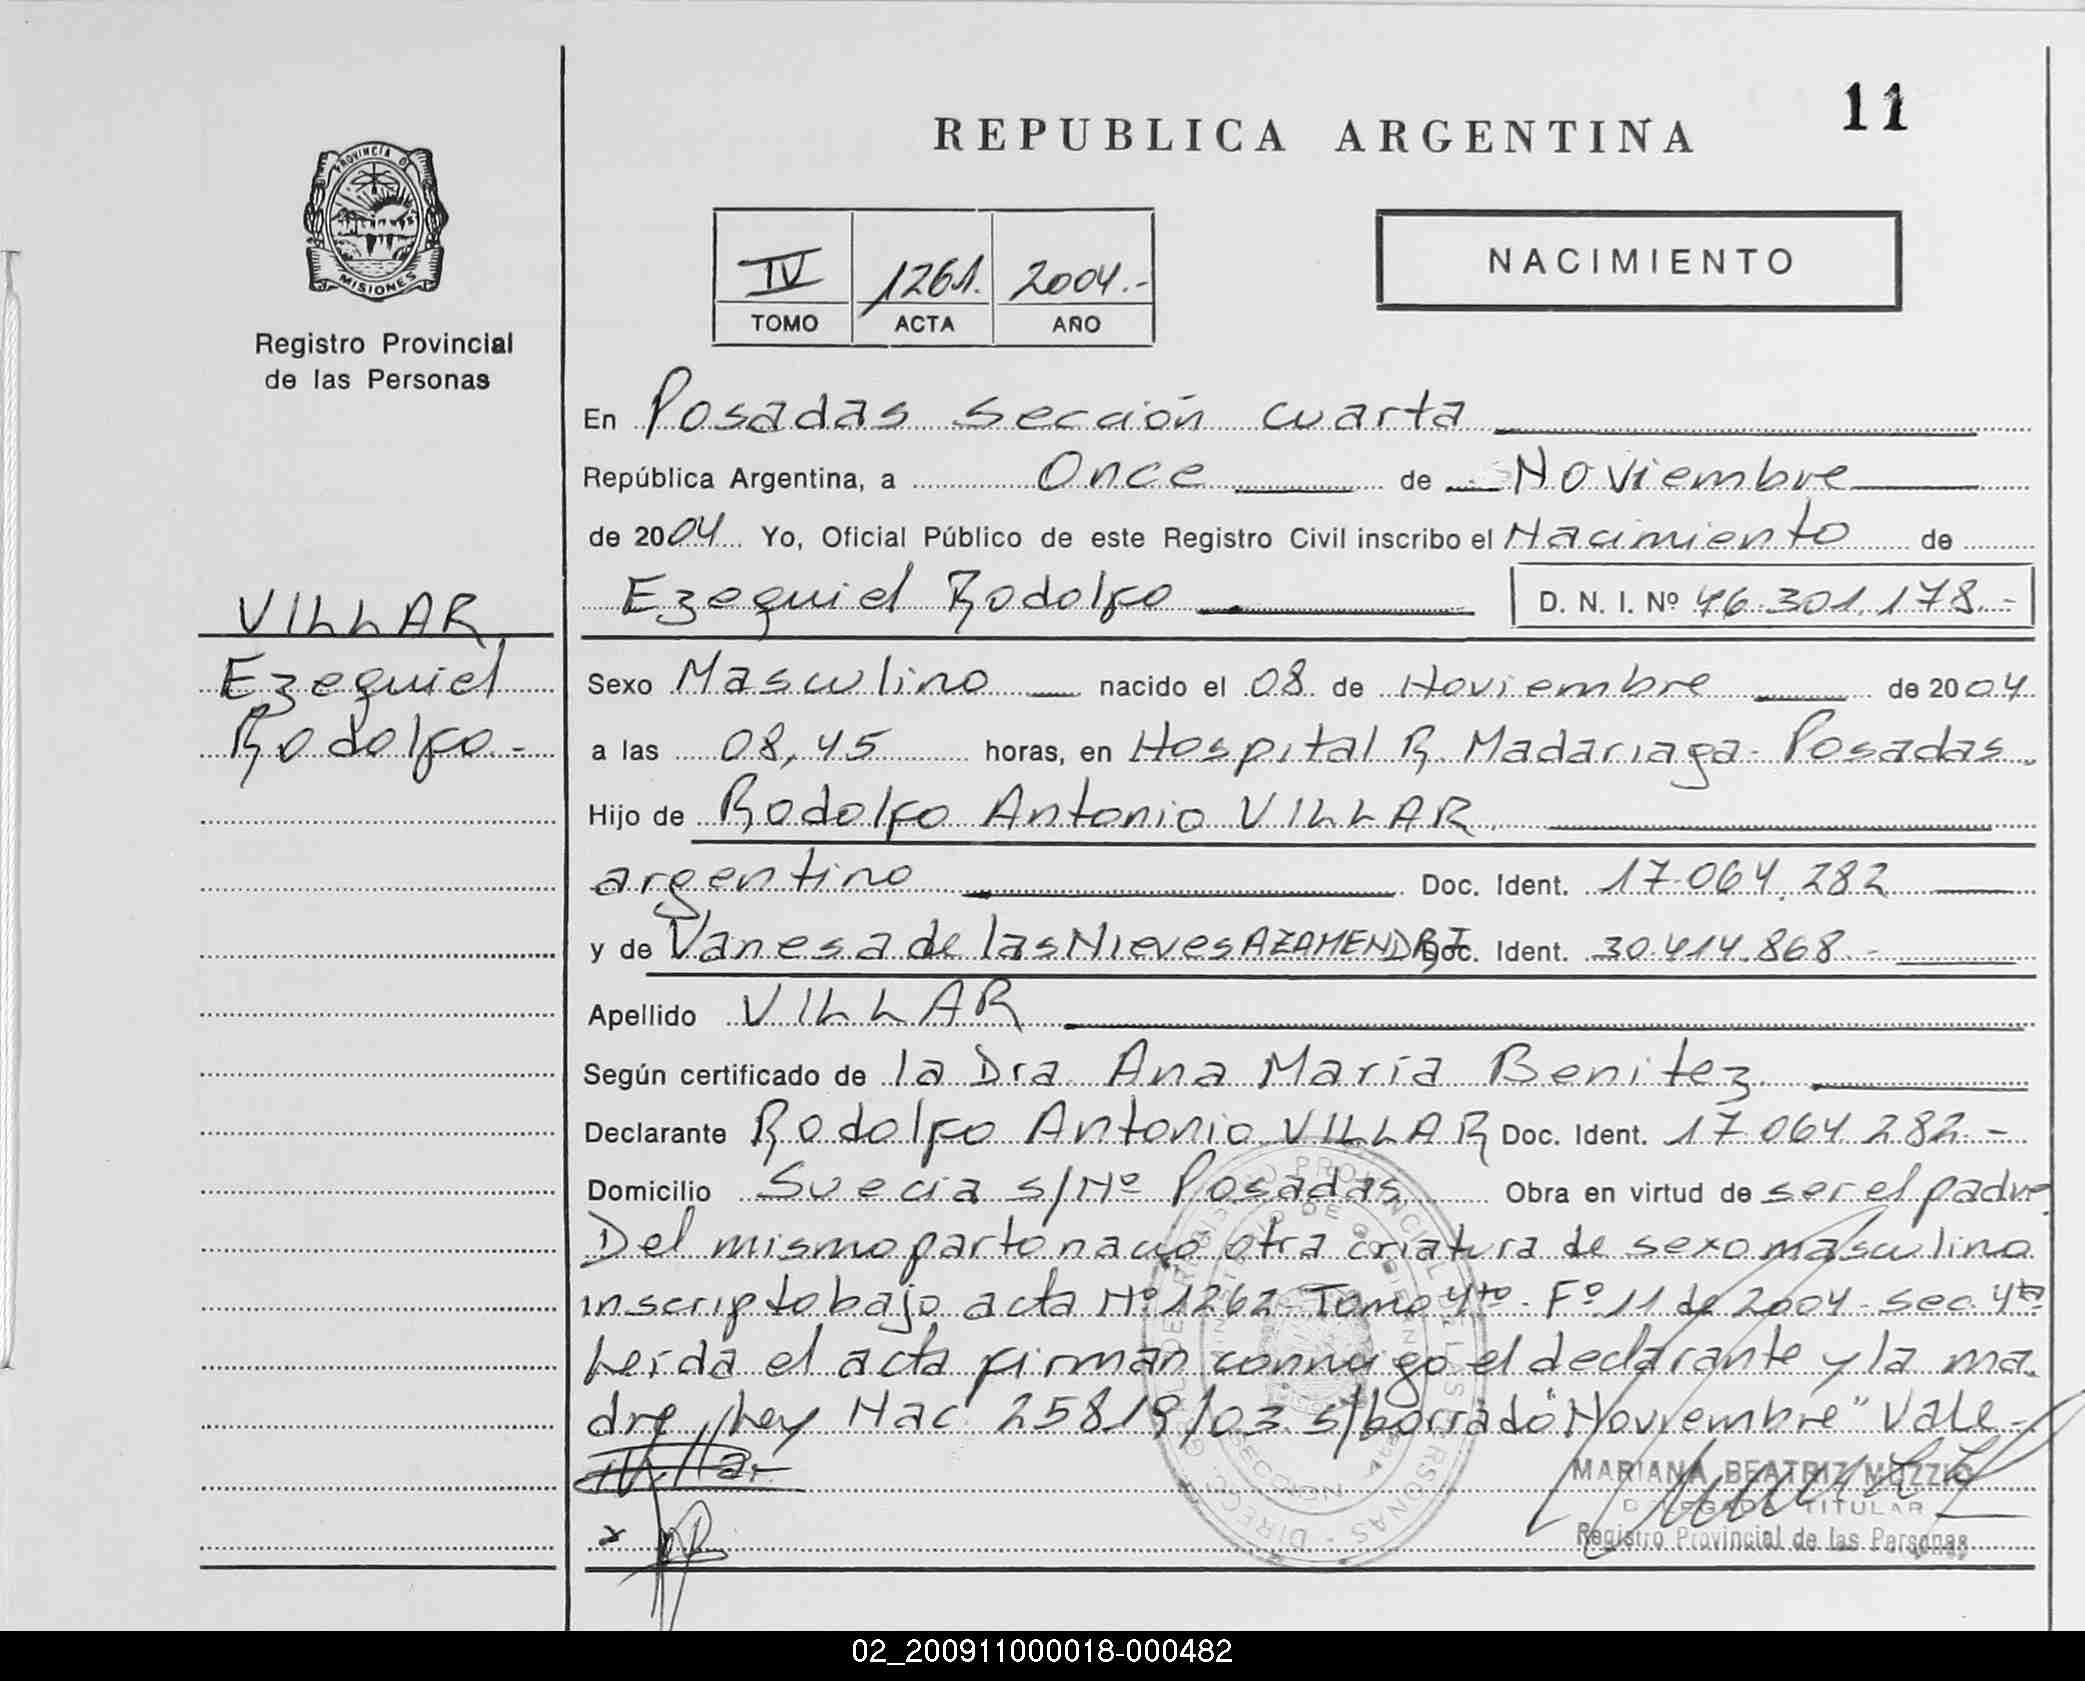 11
REPUBLICA ARGENTINA
PROVINCIA DE
MISIONES
Registro Provincial
de las Personas
IV 1261. 2004.-
TOMO ACTA AÑO
NACIMIENTO
En Posadas sección cuarta
República Argentina, a Once de Noviembre
de 2004 Yo, Oficial Público de este Registro Civil inscribo el Nacimiento de
VILLAR,
Ezequiel
Rodolfo.-
Ezequiel Rodolfo D. N. I. Nº 46.301.178.-
Sexo Masculino nacido el 08 de Noviembre de 2004
a las 08,45 horas, en Hospital R. Madariaga- Posadas.
Hijo de Rodolfo Antonio VILLAR
argentino Doc. Ident. 17.064.282
y de Vanesa de las Nieves AZAMENDRI Doc. Ident. 30.414.868.-
Apellido VILLAR
Según certificado de la Dra. Ana María Benitez
Declarante Rodolfo Antonio VILLAR Doc. Ident. 17.064.282.-
Domicilio Suecia s/Nº Posadas Obra en virtud de ser el padre
Del mismo parto nació otra criatura de sexo masculino
inscripto bajo acta Nº 1262- Tomo 4to- Fº 11 de 2004- sec. 4ta
Leída el acta firman conmigo el declarante y la ma
dre, Ley Nac. 25819/03. s/borrado "Noviembre" Vale.-
Villar
MARIANA BEATRIZ MUZZIO
DELEGADA TITULAR
Registro Provincial de las Personas
02_200911000018-000482